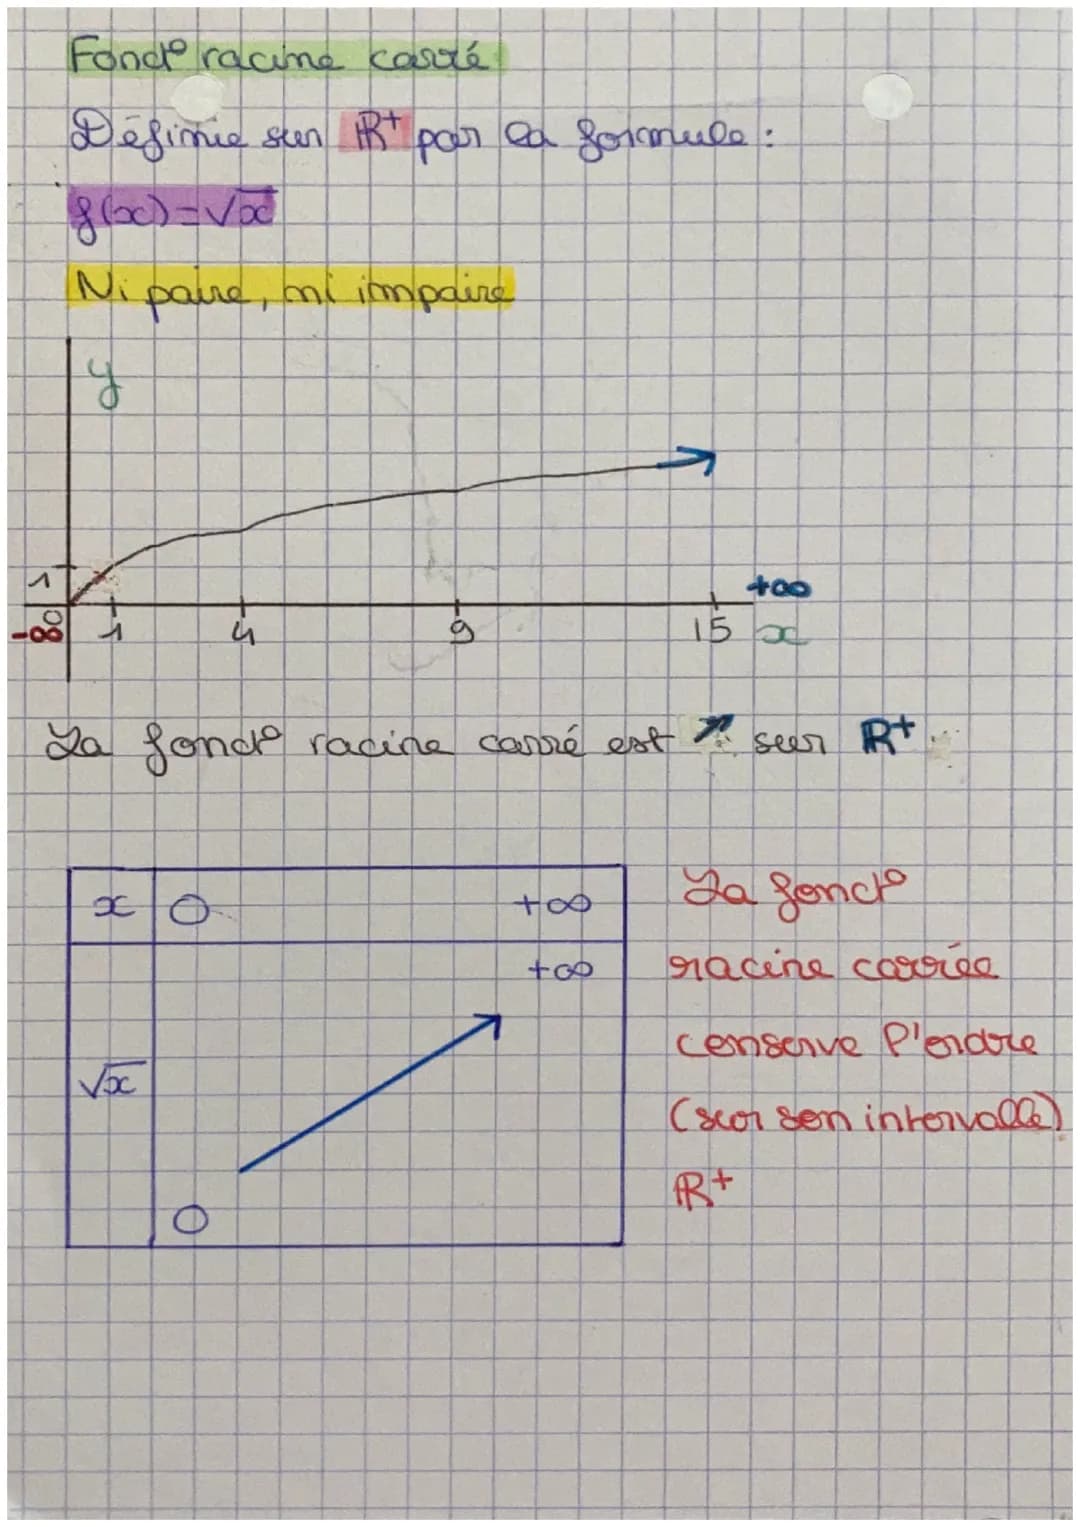 Fonct° racine carré
Définie sur ℝ+ par la formule :
f(x)=√x
Ni paire, ni impaire
y
1
+∞
-∞ 0 1 4 9 15 x
La fonct° racine carré est ↗ sur ℝ+.
x 0 +∞
+∞
√x
0
La fonct°
racine carrée
conserve l'ordre
(sur son intervalle)
ℝ+